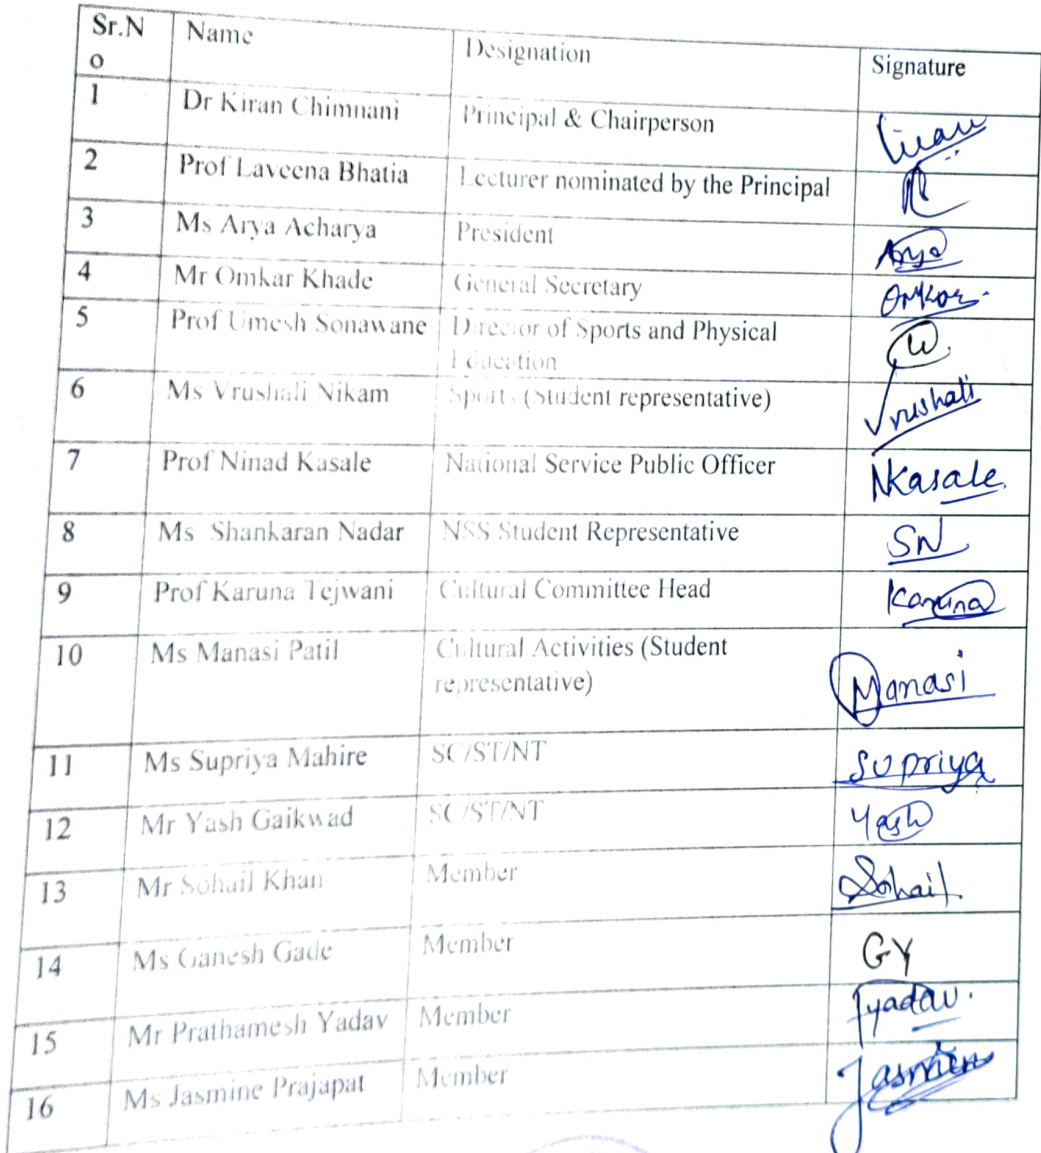 Sr.N Name Designation Signature
o
1 Dr Kiran Chimnani Principal & Chairperson Kiran
2 Prof Laveena Bhatia Lecturer nominated by the Principal
3 Ms Arya Acharya President Arya
4 Mr Omkar Khade General Secretary Omkar
5 Prof Umesh Sonawane Director of Sports and Physical U
Education
6 Ms Vrushali Nikam Sports (Student representative) Vrushali
7 Prof Ninad Kasale National Service Public Officer NKasale
8 Ms Shankaran Nadar NSS Student Representative SN
9 Prof Karuna Tejwani Cultural Committee Head Karuna
10 Ms Manasi Patil Cultural Activities (Student Manasi
representative)
11 Ms Supriya Mahire SC/ST/NT Supriya
12 Mr Yash Gaikwad SC/ST/NT Yash
13 Mr Sohail Khan Member Sohail
14 Ms Ganesh Gade Member GY
15 Mr Prathamesh Yadav Member Pyadav.
16 Ms Jasmine Prajapat Member Jasmin